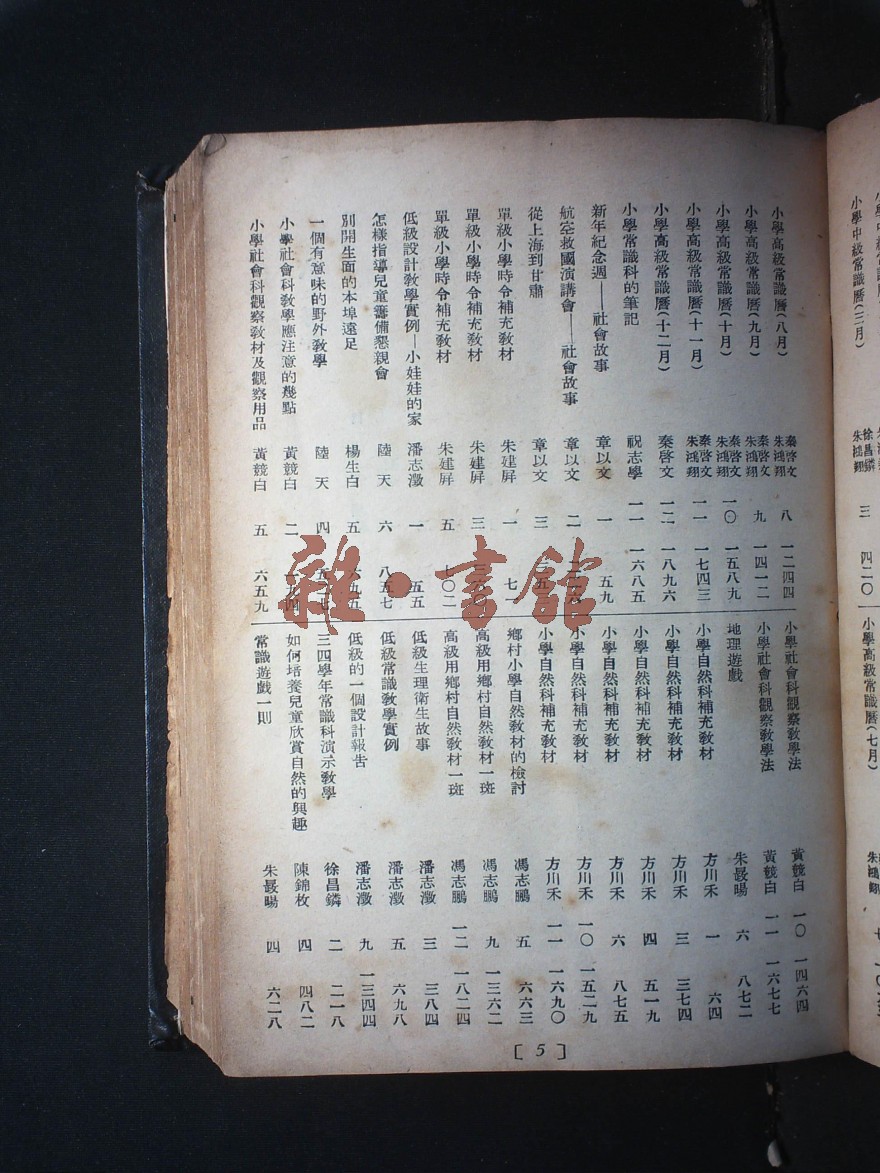 小學中級常識曆(三月) 徐昌鏻 朱鴻翔 三 四二〇
小學高級常識曆(七月) 朱鴻翔
小學高級常識曆(八月) 秦啓文 朱鴻翔 八 一二四四
小學高級常識曆(九月) 秦啓文 朱鴻翔 九 一四一二
小學高級常識曆(十月) 秦啓文 朱鴻翔 一〇 一五八九
小學高級常識曆(十一月) 秦啓文 朱鴻翔 一一 一七四三
小學高級常識曆(十二月) 秦啓文 一二 一八九六
小學常識科的筆記 祝志學 一一 一六八五
新年紀念週——社會故事 章以文 一 五九
航空救國演講會——社會故事 章以文 二
從上海到甘肅 章以文 三
單級小學時令補充敎材 朱建屛 一 七
單級小學時令補充敎材 朱建屛 三
單級小學時令補充敎材 朱建屛 五 七〇二
低級設計敎學實例—小娃娃的家 潘志澂 一 五五
怎樣指導兒童籌備懇親會 陸天 六 八五七
別開生面的本埠遠足 楊生白 五
一個有意味的野外敎學 陸天 四
小學社會科敎學應注意的幾點 黃競白 二
小學社會科觀察敎材及觀察用品 黃競白 五 六五九
小學社會科觀察敎學法 黃競白 一〇 一四六四
小學社會科觀察敎學法 黃競白 一一 一六七七
地理遊戲 朱晸暘 六 八七二
小學自然科補充敎材 方川禾 一 六四
小學自然科補充敎材 方川禾 三 三七四
小學自然科補充敎材 方川禾 四 五一九
小學自然科補充敎材 方川禾 六 八七五
小學自然科補充敎材 方川禾 一〇 一五二九
小學自然科補充敎材 方川禾 一一 一六九〇
鄉村小學自然敎材的檢討 馮志鵬 五 六六三
高級用鄉村自然敎材一斑 馮志鵬 九 一三六二
高級用鄉村自然敎材一斑 馮志鵬 一二 一八二四
低級生理衛生故事 潘志澂 三 三八四
低級常識敎學實例 潘志澂 五 六九八
低級的一個設計報告 潘志澂 九 一三四四
三四學年常識科演示敎學 徐昌鏻 二 二一八
如何培養兒童欣賞自然的興趣 陳錦枚 四 四八二
常識遊戲一則 朱晸暘 四 六二八
[ 5 ]
雜·書館